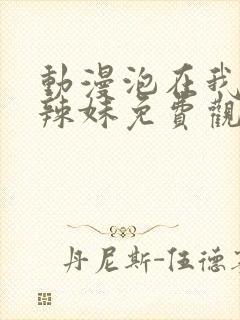 動漫泡在我
辣妹免費觀
丹尼斯-伍德